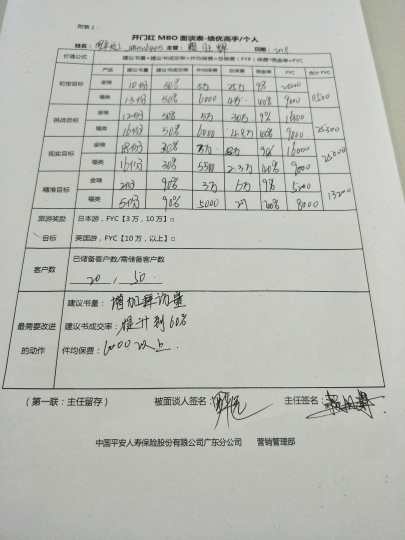 附表1：
开门红 MBO 面谈表-绩优高手/个人
主管： 日期：
价值公式 建议书量*建议书成交率*件均保费=总保费（FYP）保费*佣金率=FYC
产品 建议书量 建议书成交率 件均保费 总保费 佣金率 FYC 合计 FYC
初定目标 金瑞 10份 50% 5万 25万 9%
福类 13份 50% 6000 4万 40% 9000
挑战目标 金瑞 12份 50% 5万 30万 9% 16300
福类 16份 50% 6000 4.8万 40% 9000 25300
现实目标 金瑞 18份 30% 9% 16000
福类 16份 30% 5500 2.3万 40% 9000 25000
精准目标 金瑞 2份 90% 3万 6万 9%
福类 5份 90% 5000 2万 8000 13200
旅游奖励 日本游，FYC【3 万，10 万】□
目标 英国游，FYC【10 万，以上】□
客户数 已储备客户数/需储备客户数
20 , 50
最需要改进的动作 建议书量：增加拜访量
建议书成交率：提升到60%
件均保费：6000以上
（第一联：主任留存） 被面谈人签名： 主任签名：
中国平安人寿保险股份有限公司广东分公司 营销管理部